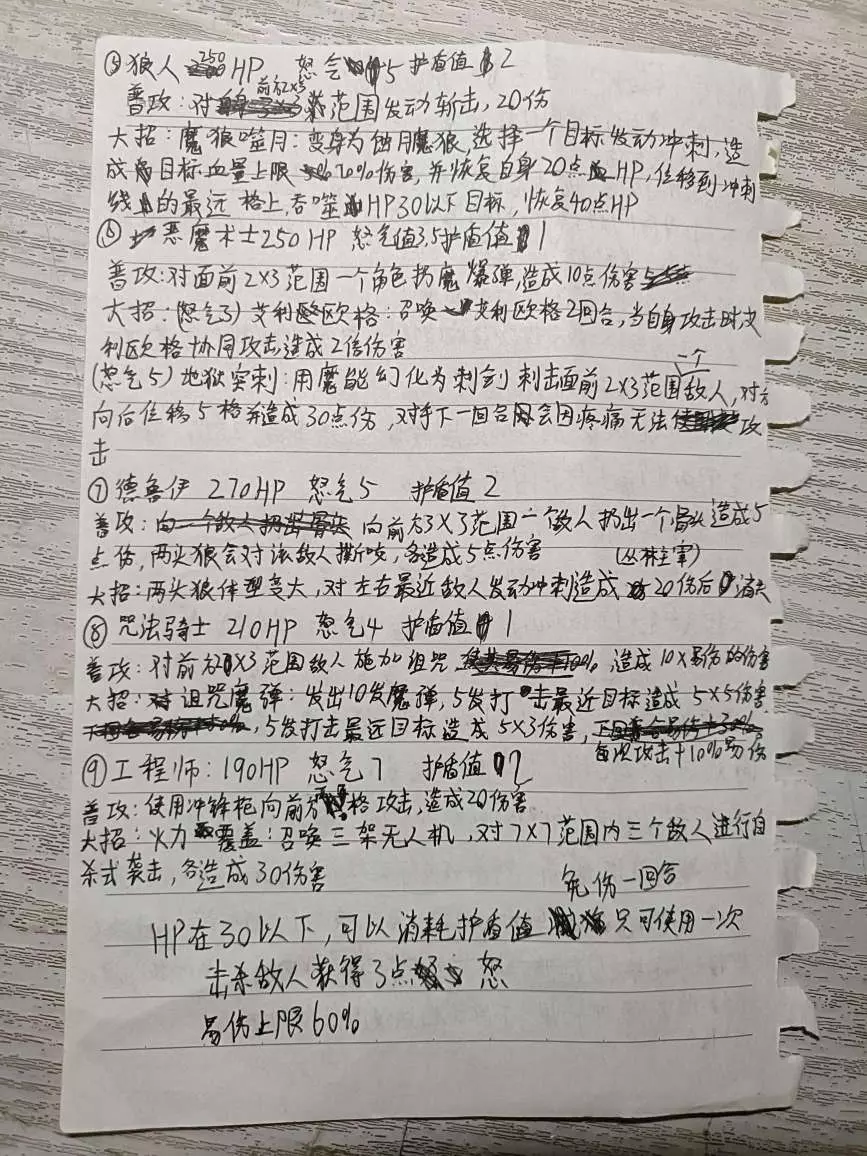 ⑤狼人 250HP 怒气5 护盾值2
普攻：对前方2×3范围发动斩击，20伤
大招：魔狼噬月：变身为蚀月魔狼，选择一个目标发动冲刺，造
成目标血量上限20%伤害，并恢复自身20点HP，位移到冲刺
线的最远格上，吞噬HP30以下目标，恢复40点HP
⑥恶魔术士250HP 怒气值3,5护盾值1
普攻：对面前2×3范围一个角色扔魔爆弹，造成10点伤害
大招：(怒气3)艾利欧格：召唤艾利欧格2回合，当自身攻击时艾
利欧格协同攻击造成2倍伤害
(怒气5)地狱突刺：用魔能幻化为刺剑刺击面前2×3范围一个敌人，对方
向后位移5格并造成30点伤，对手下一回合会因疼痛无法攻
击
⑦德鲁伊 270HP 怒气5 护盾值2
普攻：向前方3×3范围一个敌人扔出一个骨头造成5
点伤，两头狼会对该敌人撕咬，各造成5点伤害 (丛林主宰)
大招：两头狼体型变大，对左右最近敌人发动冲刺造成20伤后消失
⑧咒法骑士 210HP 怒气4 护盾值1
普攻：对前方2×3范围敌人施加组咒 造成10×易伤的伤害
大招：诅咒魔弹：发出10发魔弹，5发打击最近目标造成5×5伤害
，5发打击最远目标造成5×3伤害，
每次攻击+10%易伤
⑨工程师：190HP 怒气7 护盾值2
普攻：使用冲锋枪向前方格攻击，造成20伤害
大招：火力覆盖：召唤三架无人机，对7×7范围内三个敌人进行自
杀式袭击，各造成30伤害
免伤一回合
HP在30以下，可以消耗护盾值 只可使用一次
击杀敌人获得3点怒
易伤上限60%